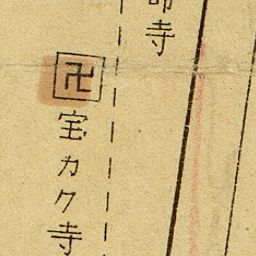 寺
卍
宝カク寺